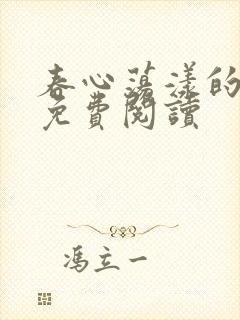 春心蕩漾的
免費閱讀
馮立一